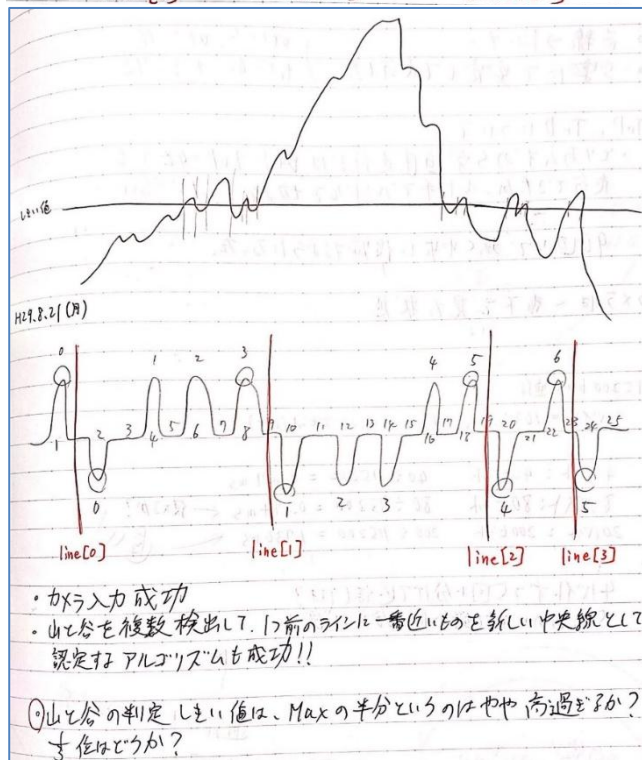 しきい値
H29.8.21(月)
0 1 2 3 4 5 6
1 2 3 4 5 6 7 8 9 10 11 12 13 14 15 16 17 18 19 20 21 22 23 24 25
0 1 2 3 4 5
line[0] line[1] line[2] line[3]
・カメラ入力成功
・山と谷を複数検出して、1つ前のラインに一番近いものを新しい中央線として
認定するアルゴリズムも成功!!
山と谷の判定しきい値は、Maxの半分というのはやや高過ぎるか?
位はどうか?